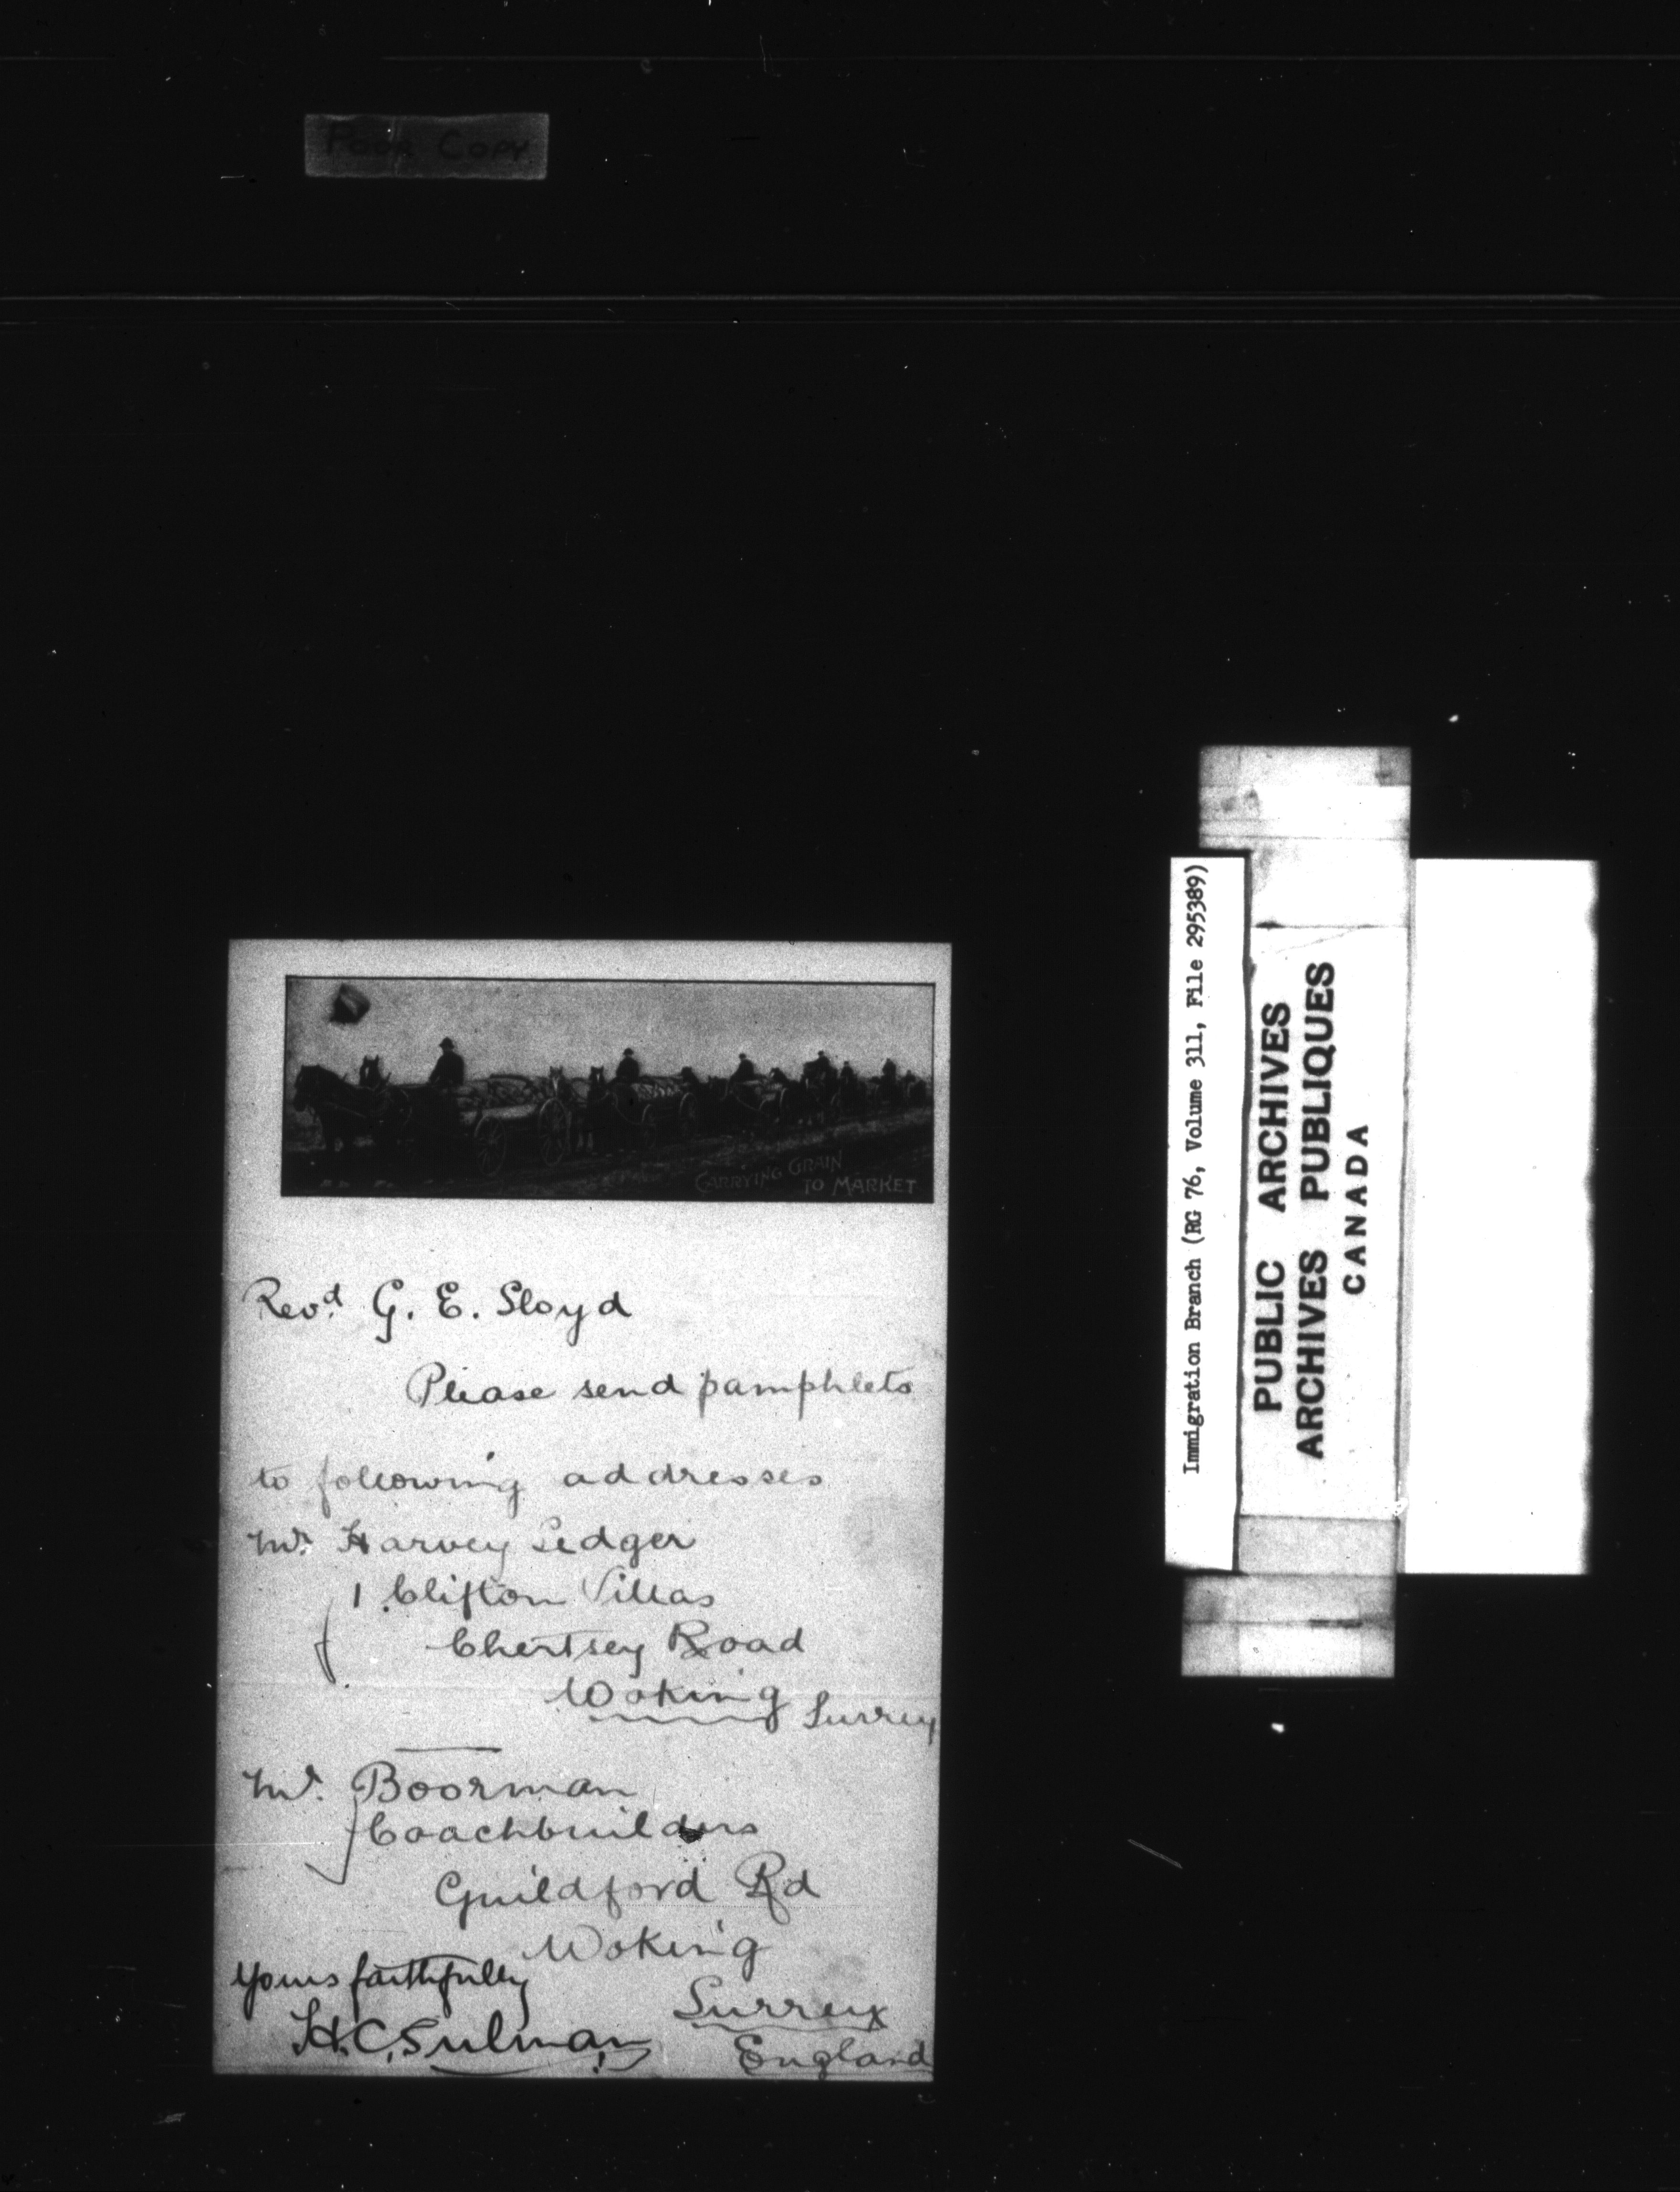 POOR COPY
CARRYING GRAIN
TO MARKET
Revd. G. E. Lloyd
Please send pamphlets
to following addresses
Mr. Harvey Ledger
1 Clifton Villas
Chertsey Road
Woking Surrey
Mr. Boorman
Coachbuilders
Guildford Rd
Woking
Surrey
England
Yours faithfully
H.C. Sulman
Immigration Branch (RG 76, Volume 311, File 295389)
PUBLIC ARCHIVES
ARCHIVES PUBLIQUES
CANADA